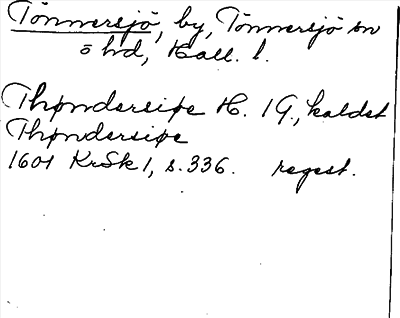 Tönnersjö, by, Tönnersjö sn
ö hd, Hall. l.
Thøndersiøe H. 1 G., kaldet
Thøndersiøe
1601 KrSk 1, s. 336. regest.